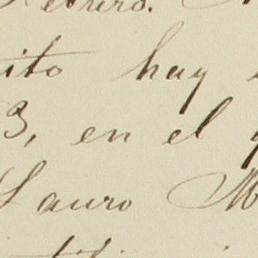 Febrero.
ito hay
3, en el
Lauro M